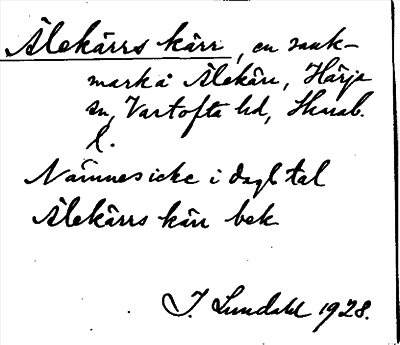 Älekärrs kärr, en sank-
mark å Älekärr, Härja
sn, Vartofta hd, Skarab.
l.
Nämnes icke i dagl tal
Älekärrs kärr bek
J. Lundahl 1928.